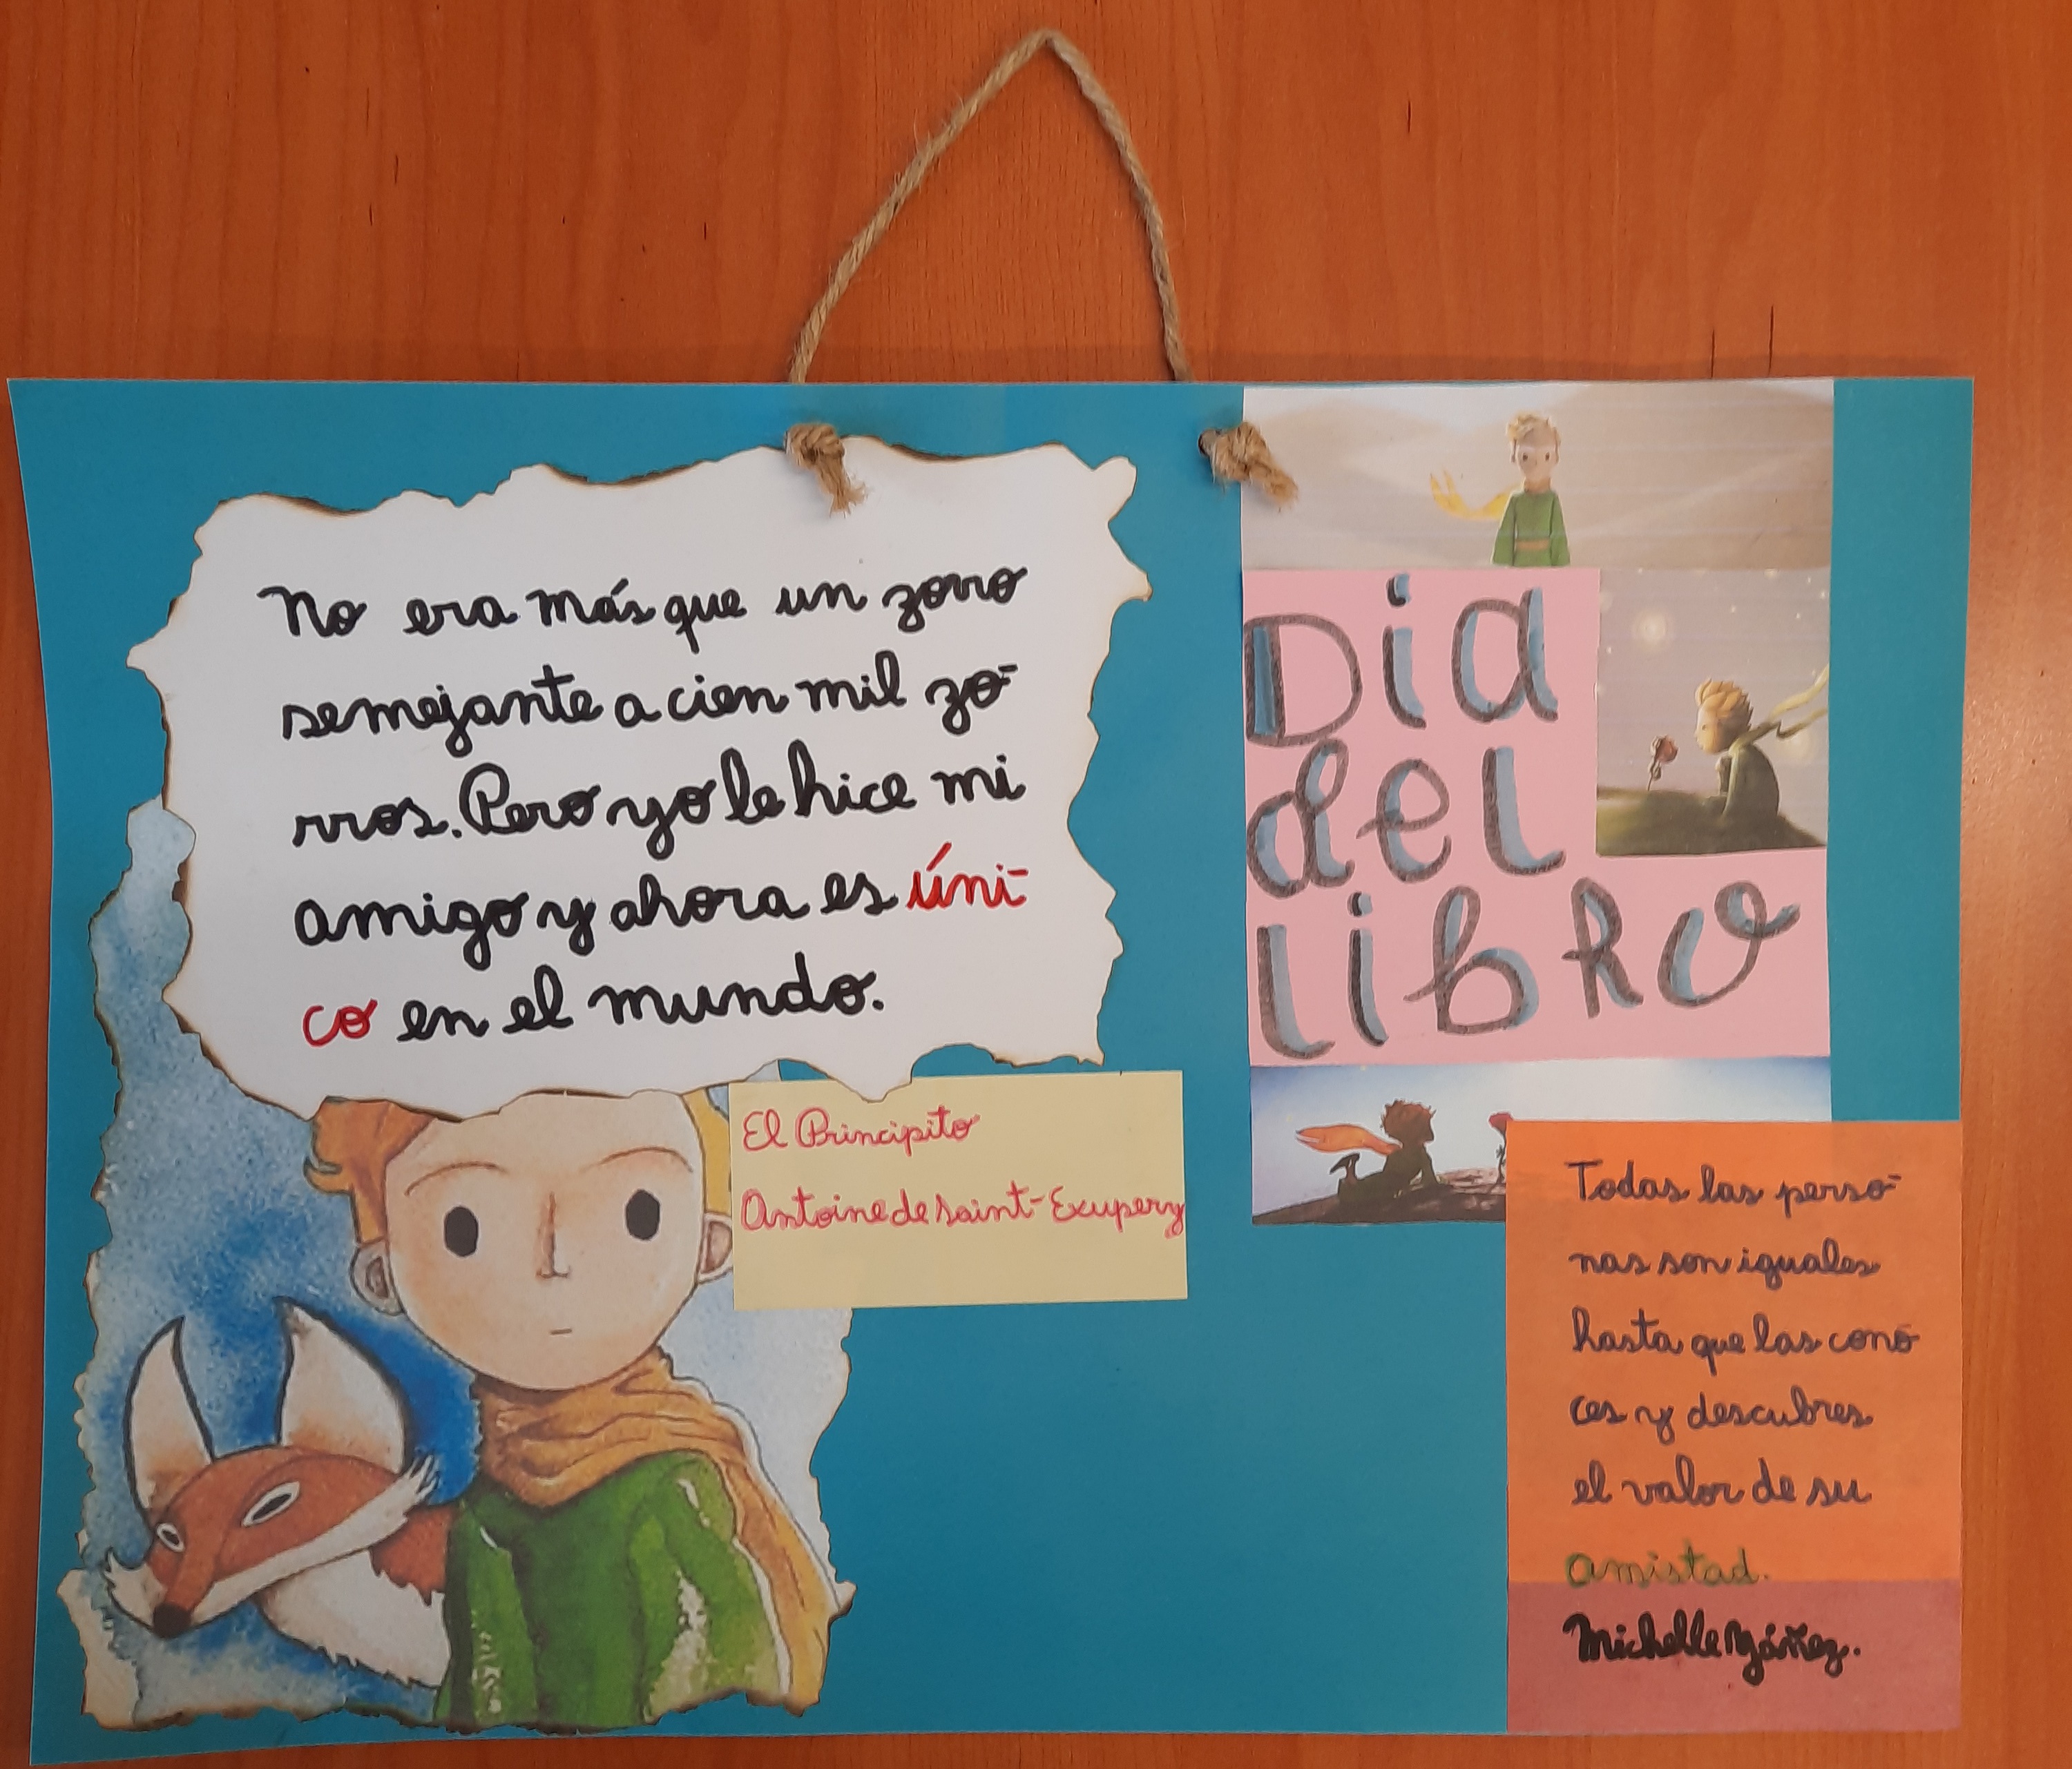 No era más que un zorro
semejante a cien mil zo-
rros. Pero yo le hice mi
amigo y ahora es úni-
co en el mundo.
El Principito
Antoine de Saint-Exupery
Dia
del
libro
Todas las perso-
nas son iguales
hasta que las cono-
ces y descubres
el valor de su
amistad.
Michelle Yáñez.